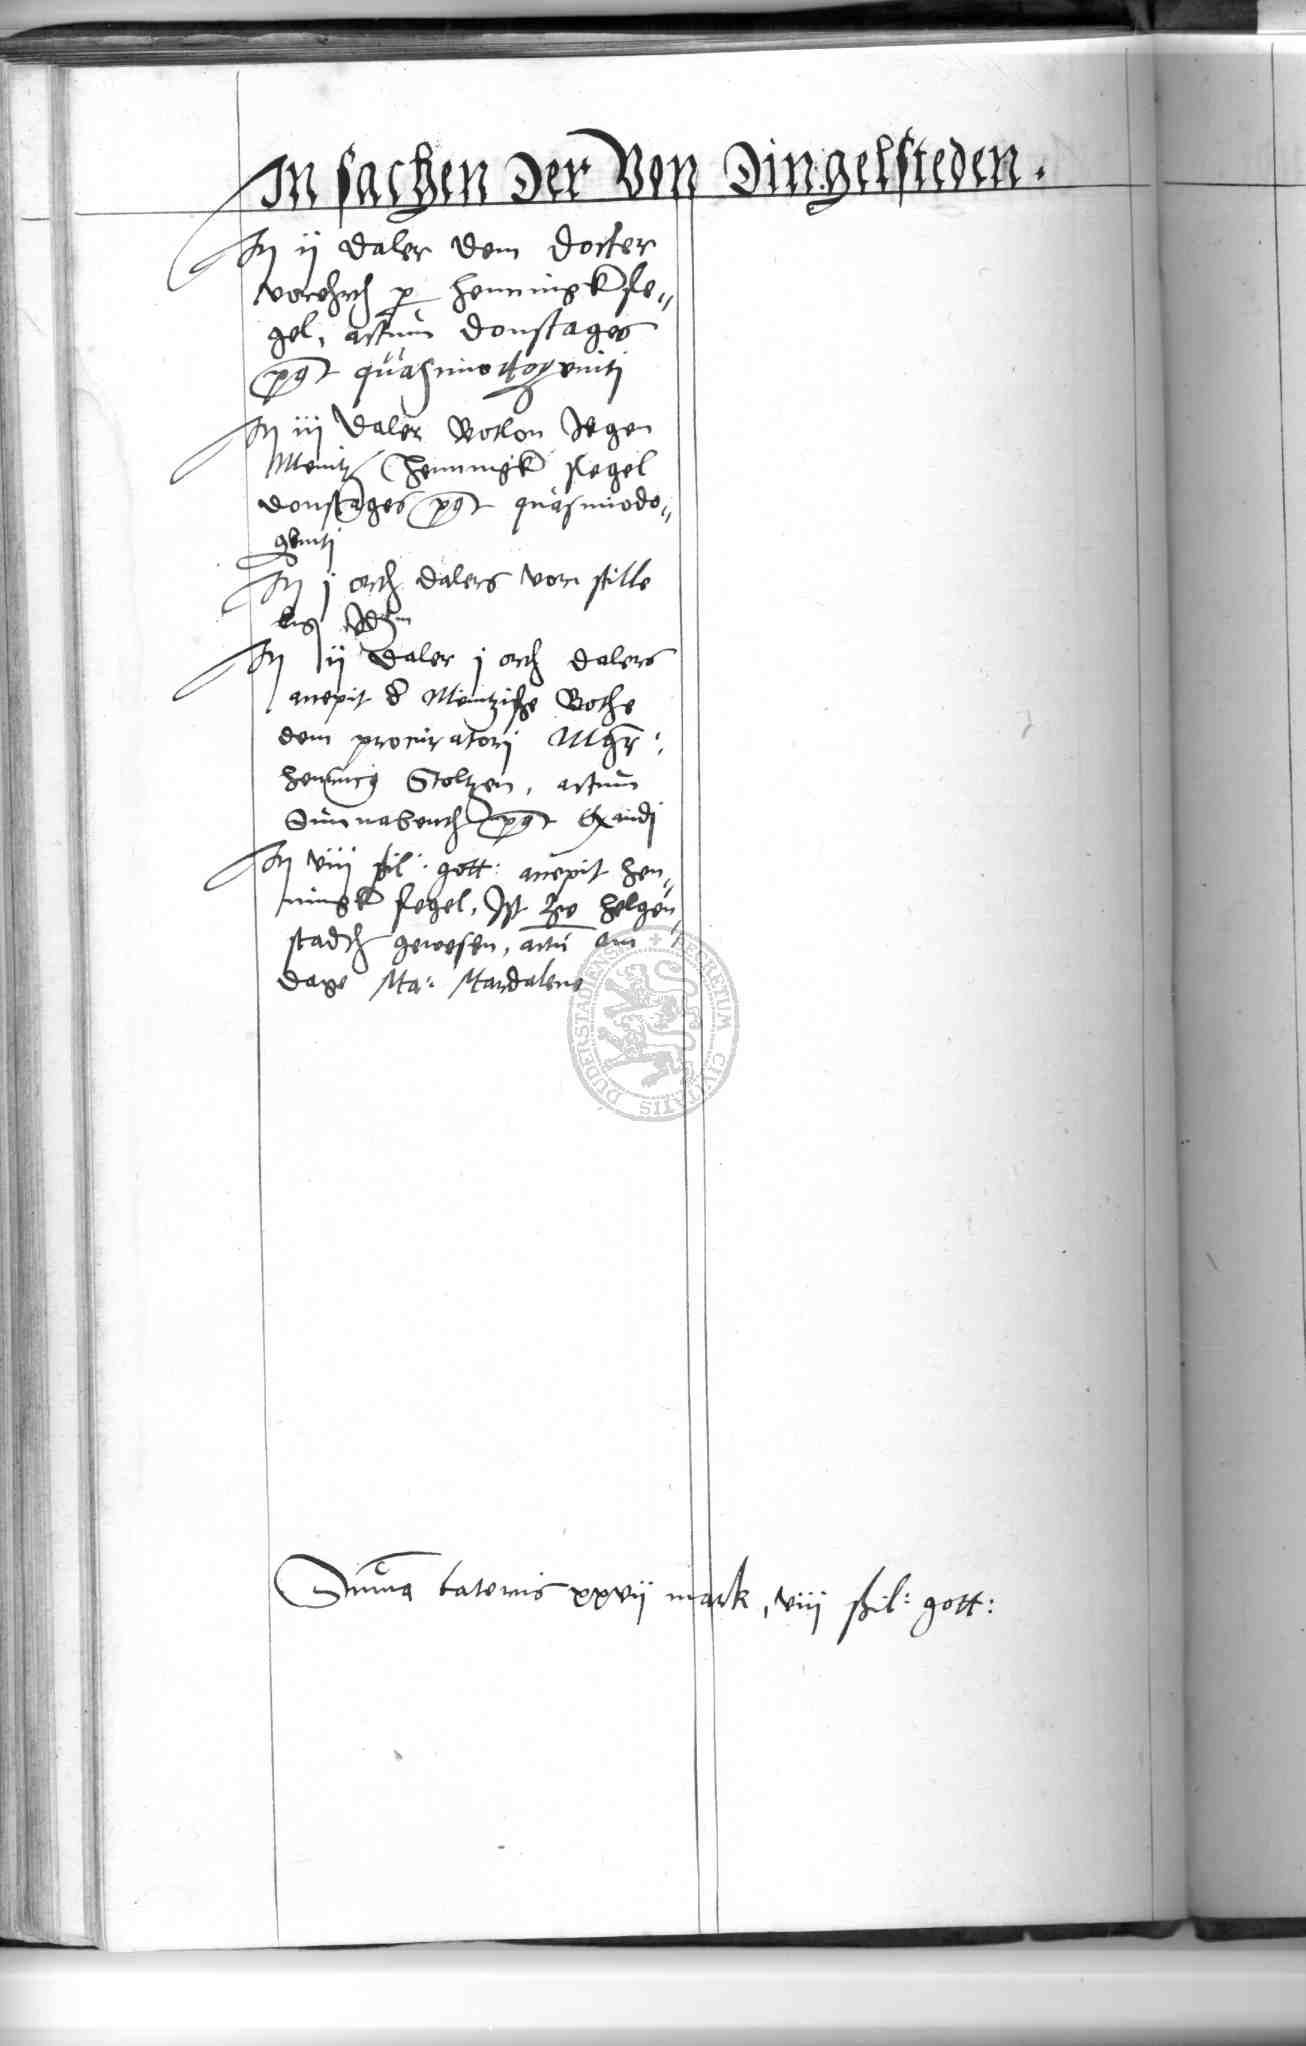 In sachen der Von Dingelsteden.
It ij daler dem docter
vorehrth p henningk fle=
gel, actum donstages
post quasimodogeniti
It iij daler Botlon kegen
Mentz henningk flegel
donstages post quasimodo=
geniti
It j orth dalers vor stille
It ij daler j orth dalers
accepit d Mentzische Bothe
dem procuratorj Mgr:
henrico Stoltzen, actum
Sunnabents post Exaudj
It viij ßil: gott: accepit hen=
ningk flegel, Ist zw helgen
stadth gewesen, actu am
dage Ma: Magdalene
Summa lateris xxvij mark, viij ßil: gott:
SECRETUM CIVITATIS DUDERSTADIENSIS